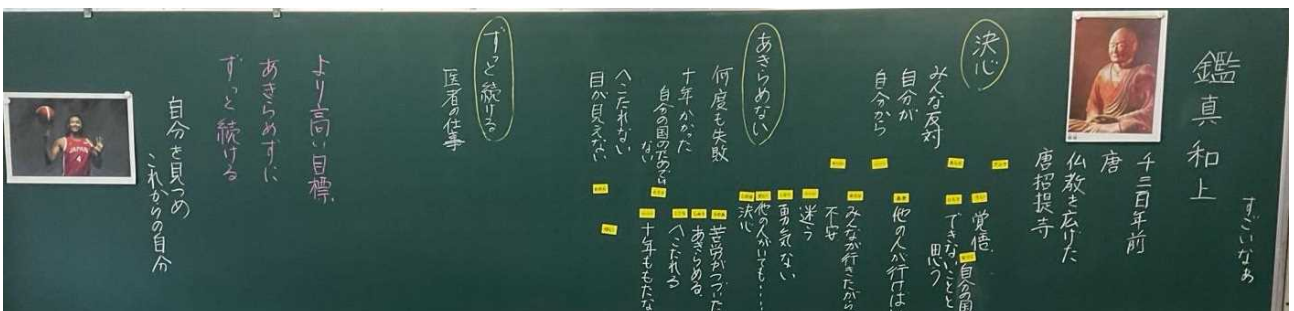 すごいなぁ
鑑真和上
千三百年前
唐
仏教を広げた
唐招提寺
決心
みんな反対
自分が
自分から
覚悟
自分の国
できないことと
思う
他の人が行けば
みんなが行きたがら
不安
迷う
勇気ない
他の人がいても・・・・
決心
あきらめない
何度も失敗
十年かかった
自分の国のためでも
ない
へこたれない
目が見えない
苦労がつづいた
あきらめる
へこたれる
十年ももたな
ずっと続ける
医者の仕事
より高い目標
あきらめずに
ずっと続ける
自分を見つめ
これからの自分
JAPAN
4